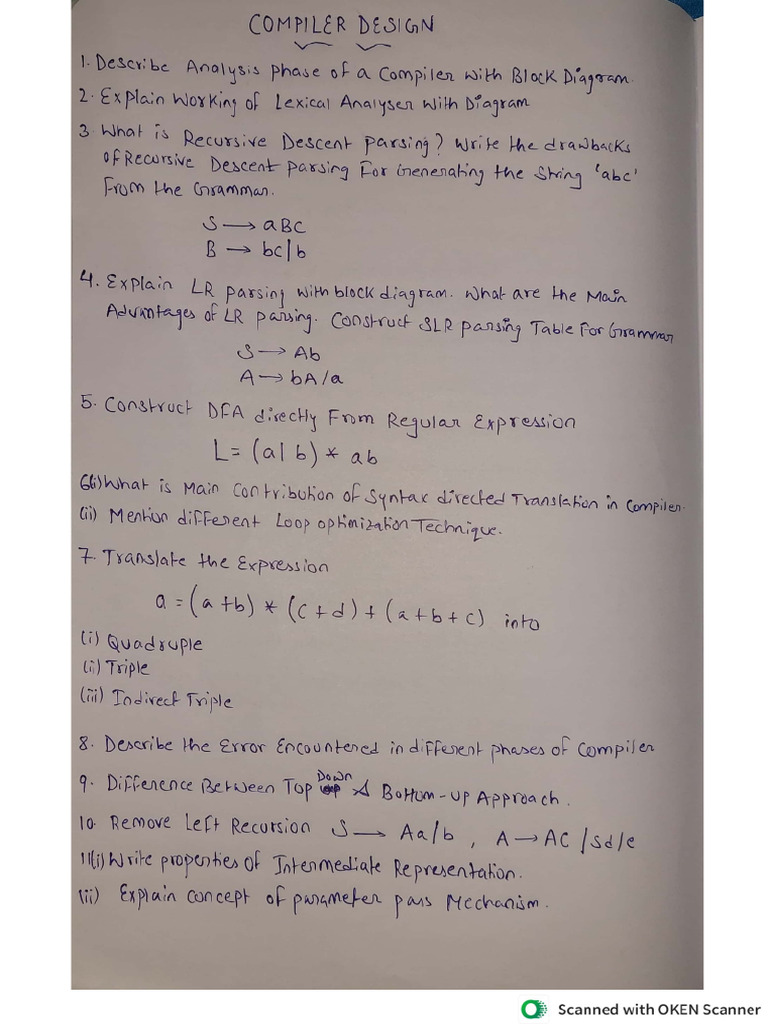 COMPILER DESIGN
1. Describe Analysis phase of a Compiler with Block Diagram.
2. Explain Working of Lexical Analyser With Diagram
3. What is Recursive Descent Parsing? Write the drawbacks
of Recursive Descent Parsing For Generating the String 'abc'
From the Grammar.
S → aBC
B → bc|b
4. Explain LR parsing with block diagram. What are the Main
Advantages of LR parsing. Construct SLR parsing Table For Grammar
S → Ab
A → bA/a
5. Construct DFA directly From Regular Expression
L = (a|b)* ab
6(i) What is Main Contribution of Syntax directed Translation in Compiler.
(ii) Mention different Loop optimization Technique.
7. Translate the Expression
a = (a+b) * (c+d) + (a+b+c) into
(i) Quadruple
(i) Triple
(iii) Indirect Triple
8. Describe the Error Encountered in different phases of Compiler
9. Difference Between Top Down & Bottom-up Approach.
10. Remove Left Recursion S → Aa/b , A → AC/Sd/e
11(i) Write properties of Intermediate Representation.
(ii) Explain concept of parameter pass Mechanism.
Scanned with OKEN Scanner